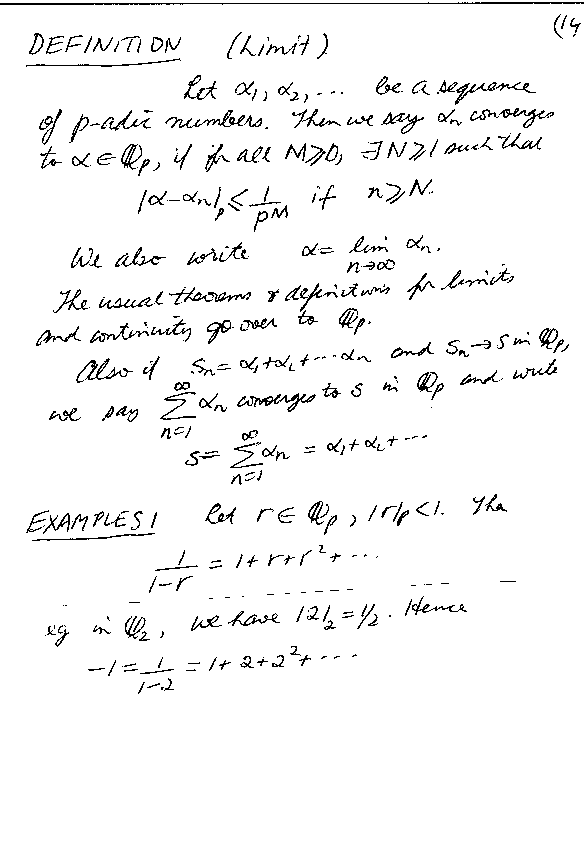 (14
DEFINITION (Limit)
Let α₁, α₂, ... be a sequence
of p-adic numbers. Then we say αn converges
to α ∈ ℚp, if for all M≥0, ∃N≥1 such that
|α-αn|p ≤ 1/pM if n≥N.
We also write α = lim αn.
n→∞
The usual theorems & definitions for limits
and continuity go over to ℚp.
Also if Sn = α₁+α₂+···αn and Sn→S in ℚp,
we say ∞∑n=1 αn converges to s in ℚp and write
s = ∞∑n=1 αn = α₁+α₂+···
EXAMPLES 1 Let r ∈ ℚp, |r|p<1. The
1/1-r = 1+r+r²+...
eg in ℚ₂, we have |2|₂ = 1/2. Hence
-1 = 1/1-2 = 1+2+2²+···